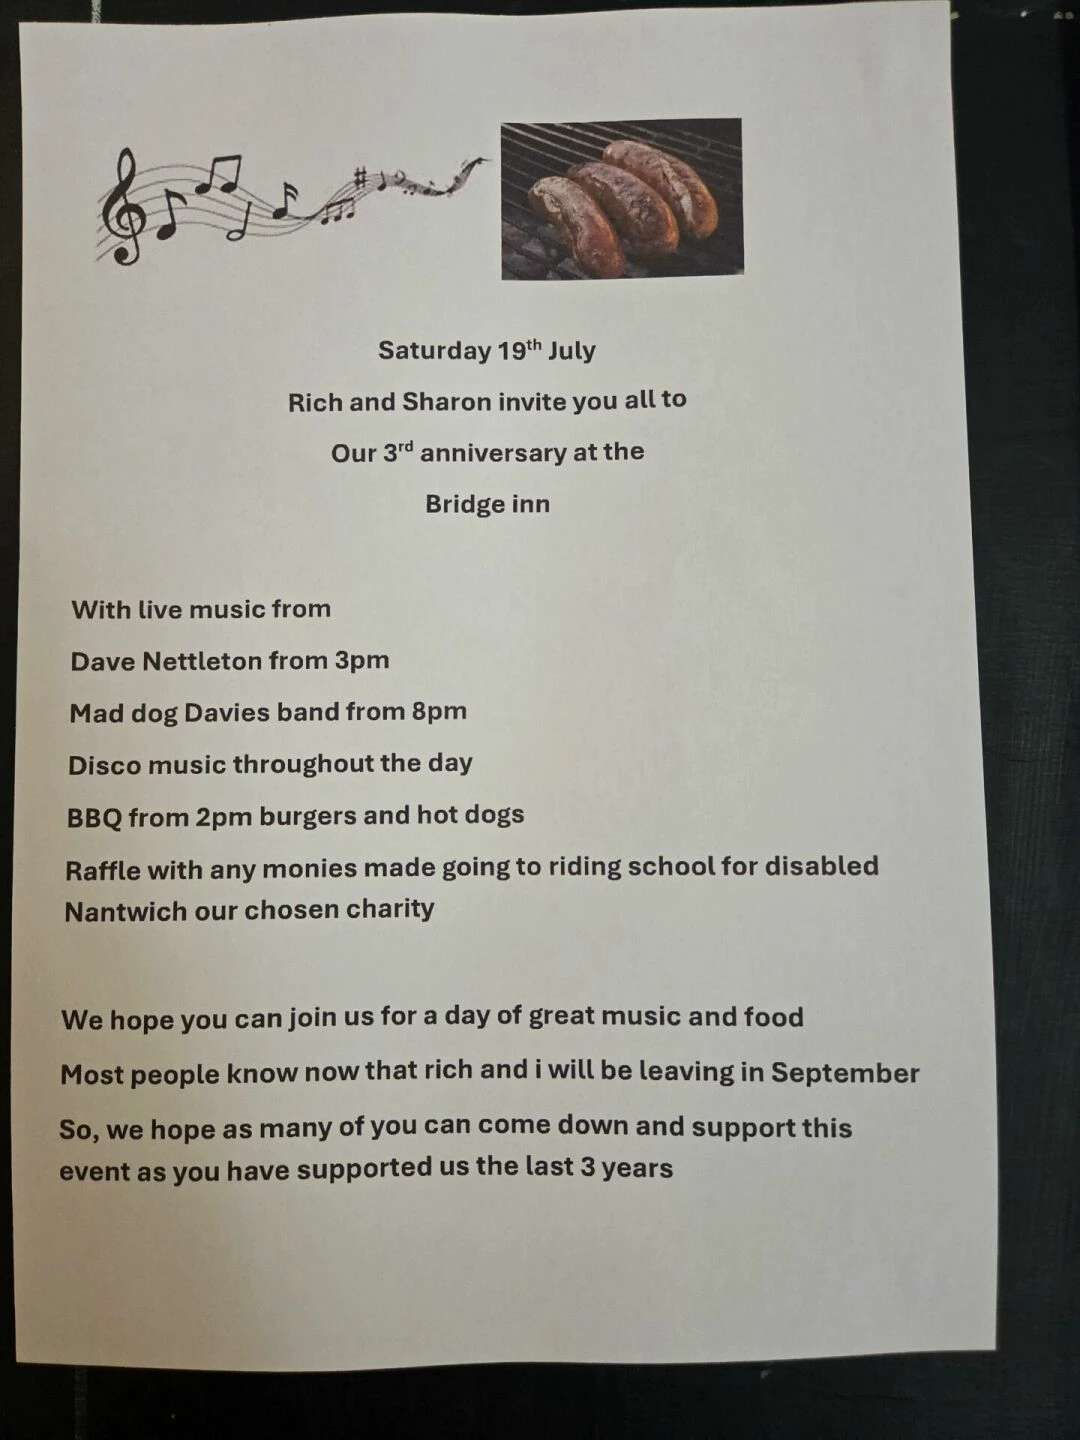 Saturday 19th July
Rich and Sharon invite you all to
Our 3rd anniversary at the
Bridge inn
With live music from
Dave Nettleton from 3pm
Mad dog Davies band from 8pm
Disco music throughout the day
BBQ from 2pm burgers and hot dogs
Raffle with any monies made going to riding school for disabled
Nantwich our chosen charity
We hope you can join us for a day of great music and food
Most people know now that rich and i will be leaving in September
So, we hope as many of you can come down and support this
event as you have supported us the last 3 years